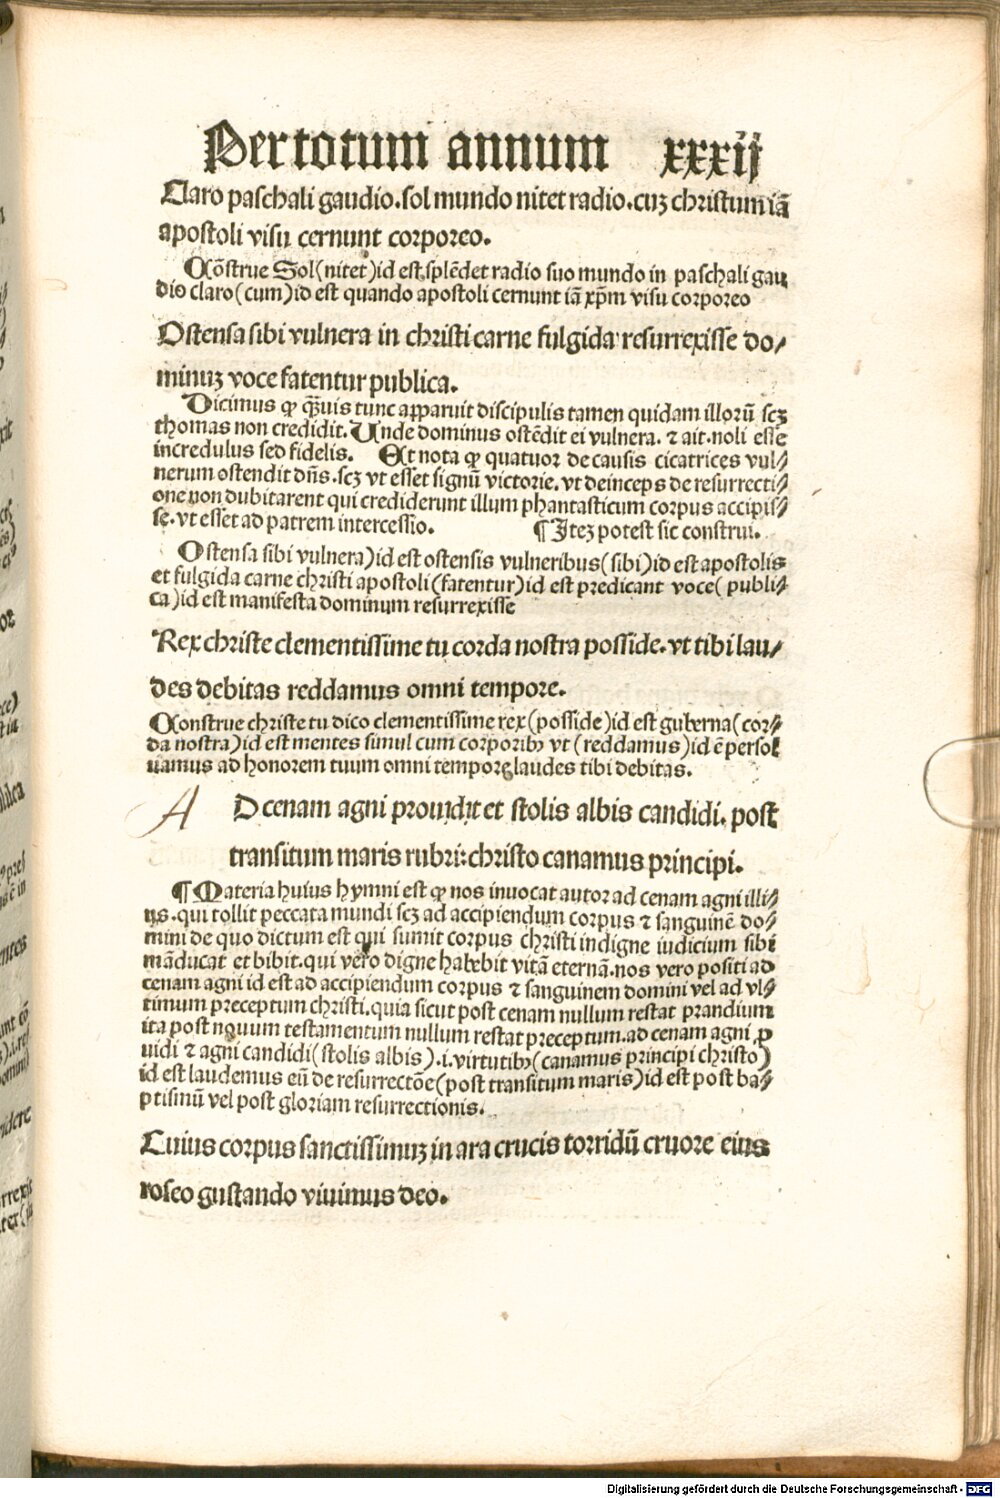 Per totum annum xxxij
Claro paschali gaudio.sol mundo nitet radio.cuʒ christum iā
apostoli visu cernunt corporeo.
Cōstrue Sol(nitet)id est splēdet radio suo mundo in paschali gau
dio claro(cum)id est quando apostoli cernunt iā xp̄m visu corporeo
Ostensa sibi vulnera in christi carne fulgida resurrexisse do⸗
minuʒ voce fatentur publica.
Dicimus ꝙ q̄uis tunc apparuit discipulis tamen quidam illorū scʒ
thomas non credidit. Unde dominus ostēdit ei vulnera. ⁊ ait.noli esse
incredulus sed fidelis. Et nota ꝙ quatuor de causis cicatrices vul⸗
nerum ostendit dn̄s.scʒ vt esset signū victorie.vt deinceps de resurrecti⸗
one non dubitarent qui crediderunt illum phantasticum corpus accipis⸗
se.vt esset ad patrem intercessio. ¶ Iteʒ potest sic construi.
Ostensa sibi vulnera)id est ostensis vulneribus(sibi)id est apostolis
et fulgida carne christi apostoli(fatentur)id est predicant voce(publi⸗
ca)id est manifesta dominum resurrexisse
Rex christe clementissime tu corda nostra posside.vt tibi lau⸗
des debitas reddamus omni tempore.
Construe christe tu dico clementissime rex(posside)id est guberna(cor⸗
da nostra)id est mentes simul cum corporibꝫ vt (reddamus)id ē persol
uamus ad honorem tuum omni tempore laudes tibi debitas.
A D cenam agni prouidit et stolis albis candidi. post
transitum maris rubri:christo canamus principi.
¶ Materia huius hymni est ꝙ nos inuocat autor ad cenam agni illi⸗
us.qui tollit peccata mundi scʒ ad accipiendum corpus ⁊ sanguinē do⸗
mini de quo dictum est qui sumit corpus christi indigne iudicium sibi
māducat et bibit.qui vero digne habebit vitā eternā.nos vero positi ad
cenam agni id est ad accipiendum corpus ⁊ sanguinem domini vel ad vl⸗
timum preceptum christi.quia sicut post cenam nullum restat prandium
ita post nouum testamentum nullum restat preceptum.ad cenam agni ꝓ
uidi ⁊ agni candidi(stolis albis).i.virtutibꝫ(canamus principi christo)
id est laudemus eū de resurrectōe(post transitum maris)id est post ba⸗
ptismū vel post gloriam resurrectionis.
Cuius corpus sanctissimuʒ in ara crucis torridū cruore eius
roseo gustando viuimus deo.
Digitalisierung gefördert durch die Deutsche Forschungsgemeinschaft - DFG